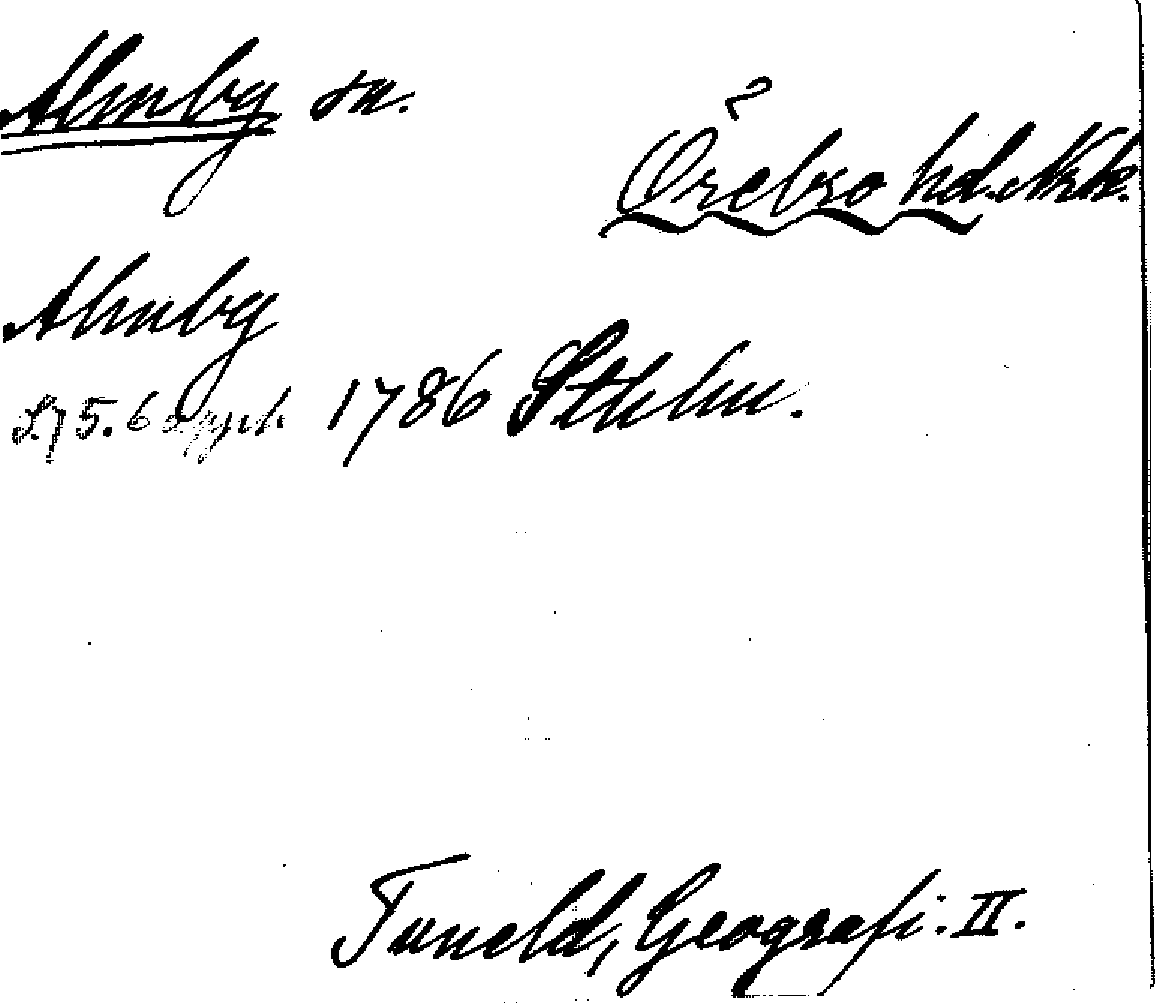 Almby sn.
Örebro hd. Nrk.
Almby
s. 75. 6 uppl. 1786 Sthlm.
Tuneld, Geografi. II.